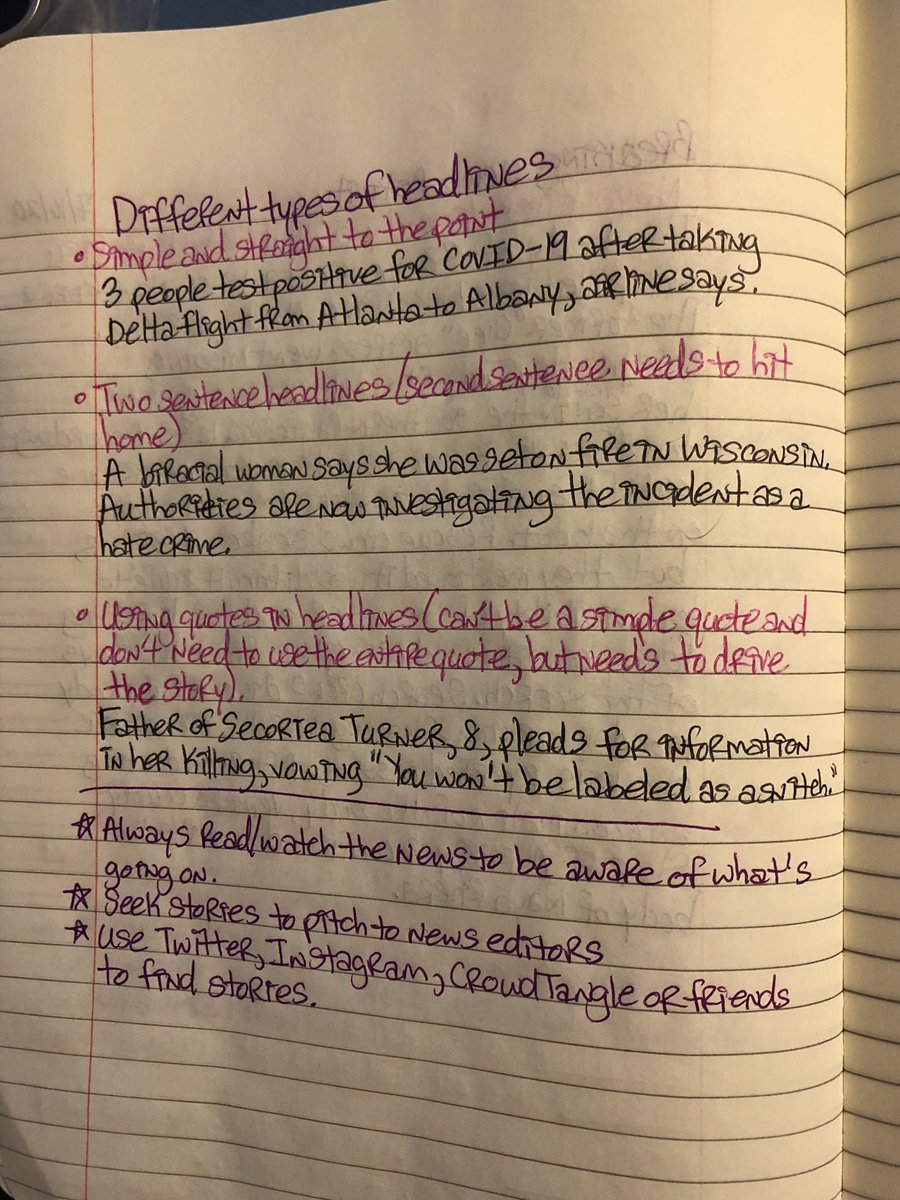 Different types of headlines
• Simple and straight to the point
3 people test positive for COVID-19 after taking
Delta flight from Atlanta to Albany, airline says.
• Two sentence headlines (second sentence needs to hit
home)
A biracial woman says she was set on fire in Wisconsin.
Authorities are now investigating the incident as a
hate crime.
• Using quotes in headlines (can't be a simple quote and
don't need to use the entire quote, but needs to drive
the story).
Father of Secoriea Turner, 8, pleads for information
in her killing, vowing "You won't be labeled as a snitch."
☆ Always read/watch the news to be aware of what's
going on.
☆ Seek stories to pitch to news editors
☆ Use Twitter, Instagram, CrowdTangle or friends
to find stories.